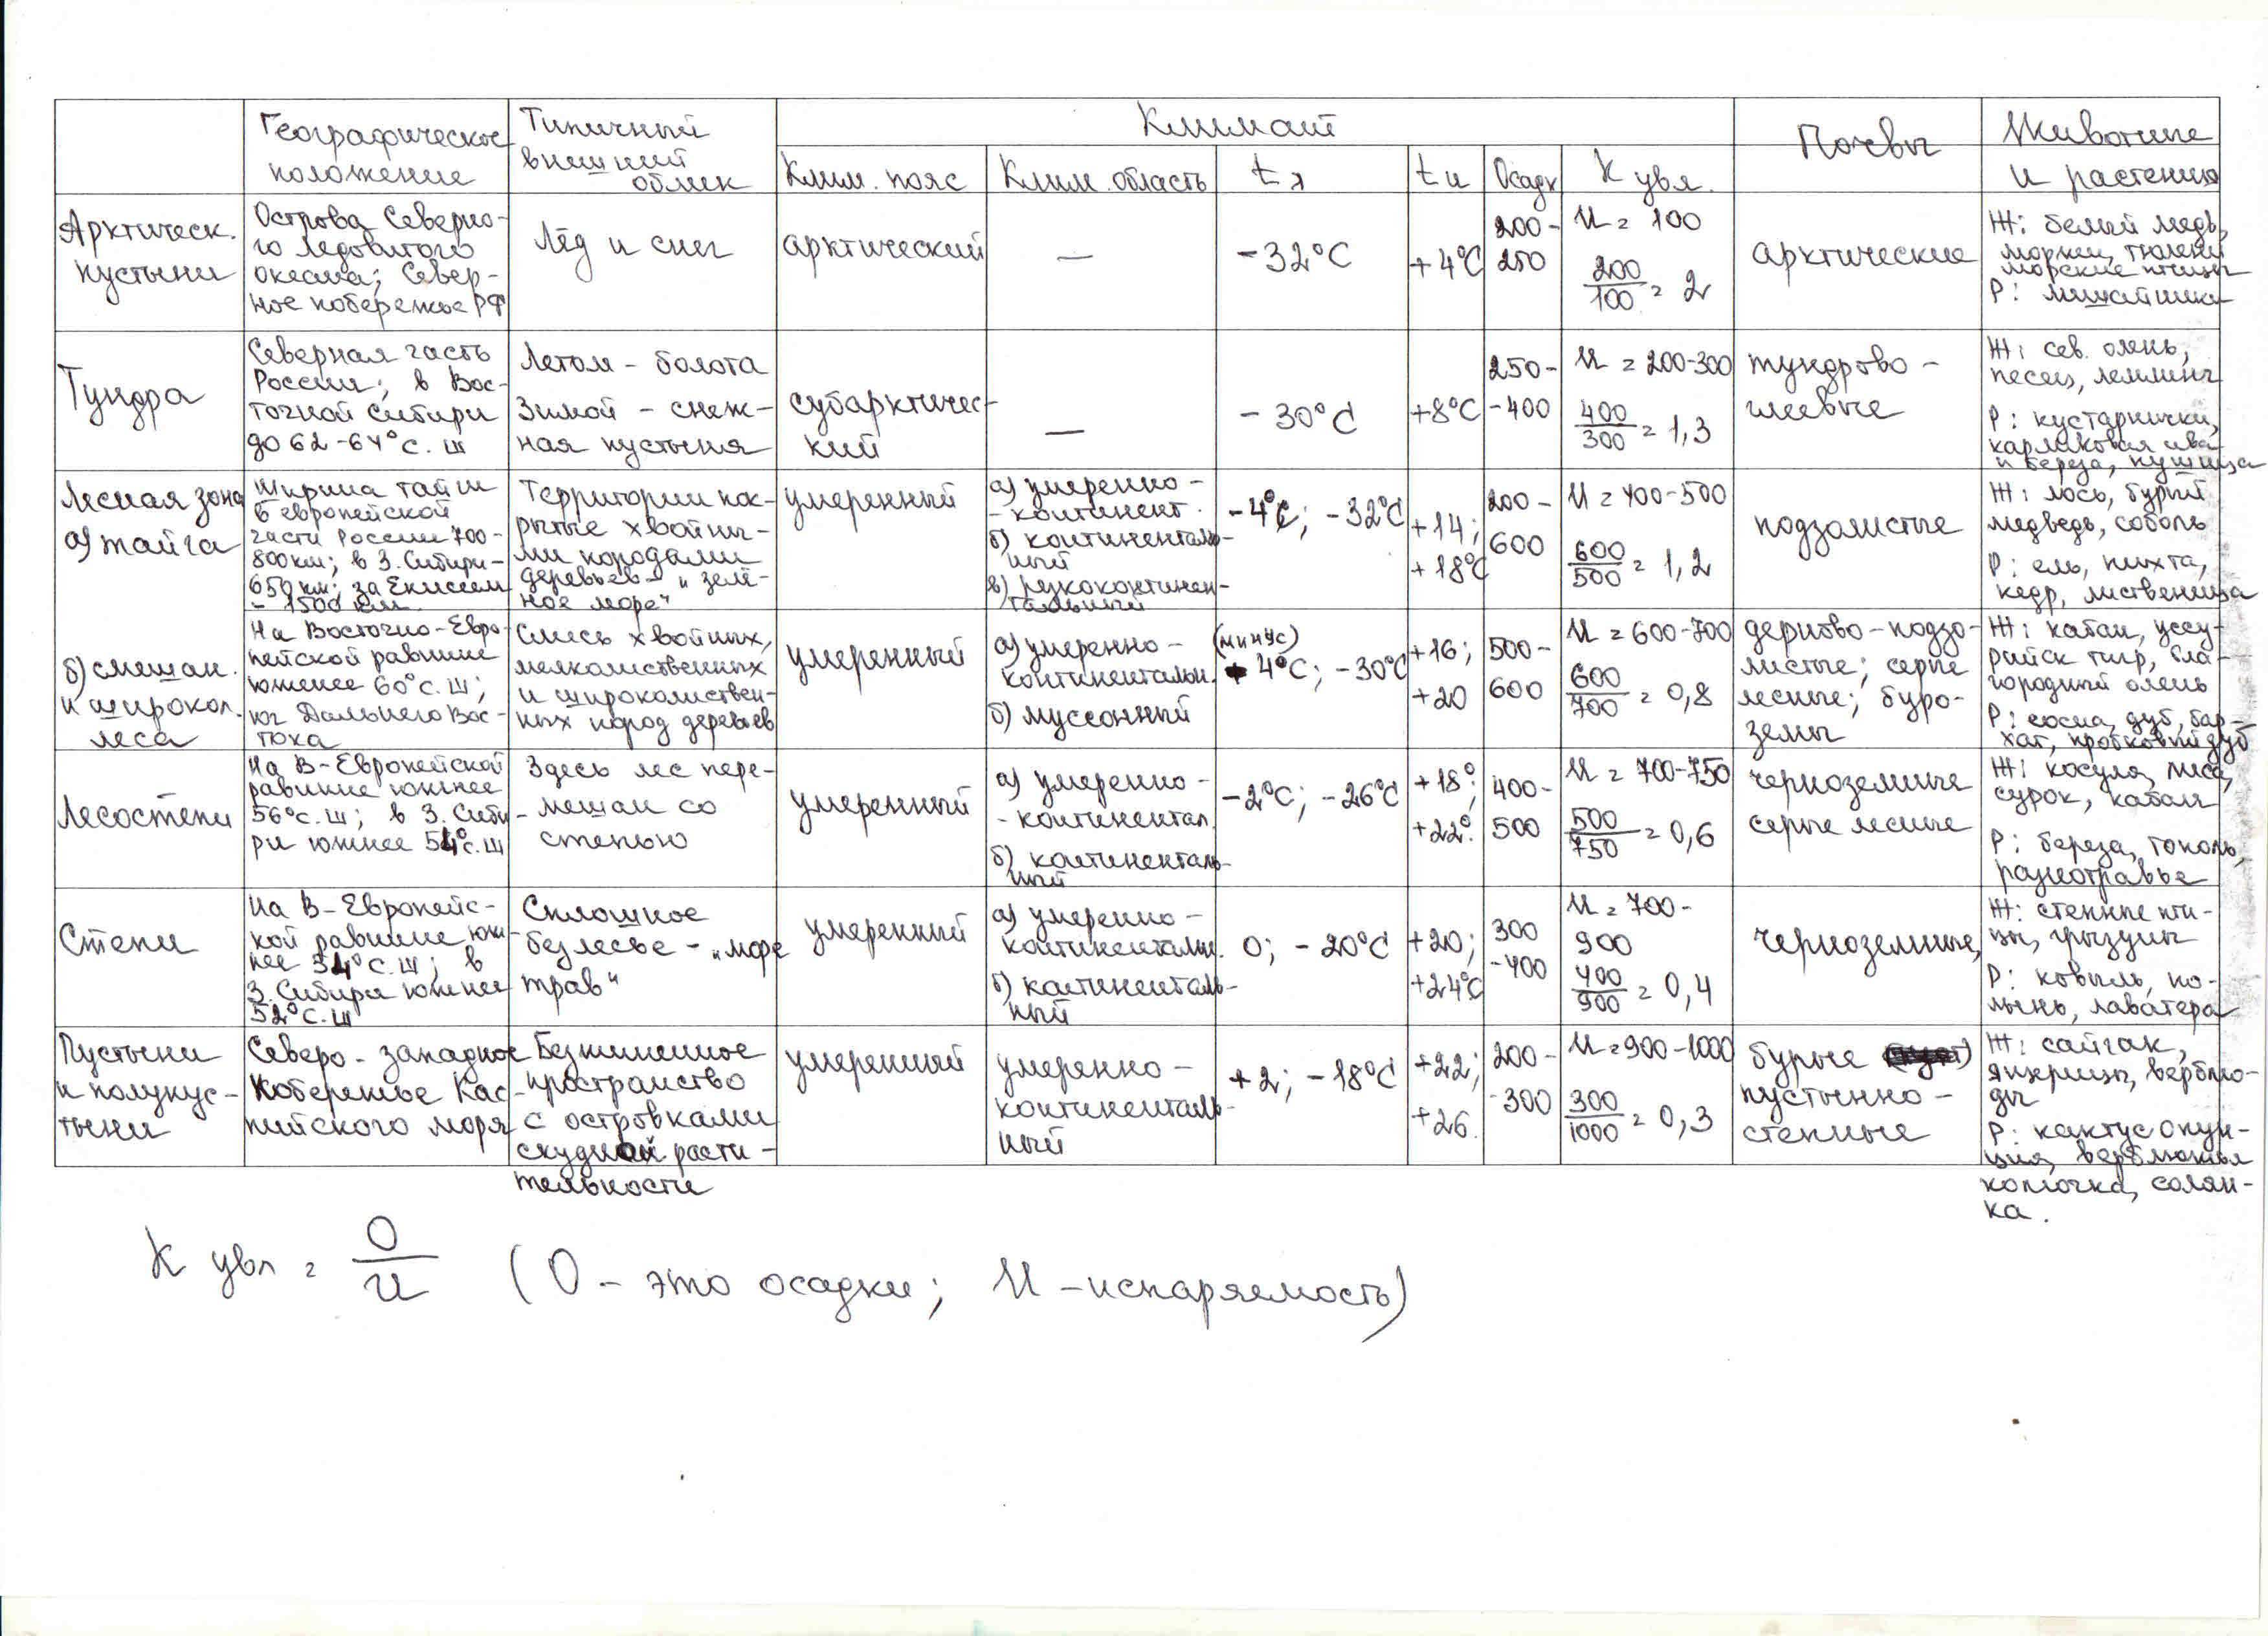 Географическое
положение
Типичный
внешний
облик
Климат
Клим. пояс
Клим. область
tя
tи
Осадк
К увл.
Почвы
Животные
и растения
Арктическ.
пустыни
Острова Северно-
го Ледовитого
океана; Север-
ное побережье РФ
Лёд и снег
арктический
—
-32°С
+4°С
200-
250
И = 100
200/100 = 2
арктические
Ж: белый медь,
моржи, тюлени
морские птицы
Р: лишайники
Тундра
Северная часть
России; в Вос-
точной Сибири
до 62-64°с.ш
Летом - болота
Зимой - снеж-
ная пустыня
субарктичес-
кий
—
-30°С
+8°С
250-
-400
И = 200-300
400/300 = 1,3
тундрово-
глеевые
Ж: сев. олень,
песец, лемминг
Р: кустарнички,
карликовая ива
и береза, пушица
Лесная зона
а) тайга
Ширина тайги
в европейской
части России 700-
800км; в З. Сибири-
650 км; за Енисеем
- 1500 км.
Территории пок-
рытые хвойны-
ми породами
деревьев - "зелё-
ное море"
умеренный
а) умеренно-
- континент.
б) континенталь-
ный
в) резкоконтинен-
тальный
-4°С; -32°С
+14;
+18°С
200-
600
И = 400-500
600/500 = 1,2
подзолистые
Ж: лось, бурый
медведь, соболь
Р: ель, пихта,
кедр, лиственица
б) смешан.
и широкол.
леса
На Восточно-Евро-
пейской равнине
южнее 60°с.ш;
юг Дальнего Вос-
тока
Смесь хвойных,
мелколиственных
и широколиствен-
ных пород деревьев
умеренный
а) умеренно-
континентальн.
б) муссонный
(минус)
4°С; -30°С
+16;
+20
500-
600
И = 600-700
600/700 = 0,8
дерново-подзо-
листые; серые
лесные; буро-
земы
Ж: кабан, уссу-
рийск тигр, бла-
городный олень
Р: сосна, дуб, бар-
хат, пробковый дуб
Лесостепи
На В-Европейской
равнине южнее
56°с.ш; в З. Сиби-
ри южнее 54°с.ш
Здесь лес пере-
мешан со
степью
умеренный
а) умеренно-
- континентал.
б) континенталь-
ный
-2°С; -26°С
+18°;
+22°.
400-
500
И = 700-750
500/750 = 0,6
черноземные
серые лесные
Ж: косуля, лиса,
сурок, кабан
Р: береза, тополь,
разнотравье
Степи
На В-Европейс-
кой равнине юж-
нее 54°с.ш; в
З. Сибири южнее
52°с.ш
Сплошное
безлесье - "море
трав"
умеренный
а) умеренно-
континентальн.
б) континенталь-
ный
0; -20°С
+20;
+24°С
300
-400
И = 700-
900
400/900 = 0,4
черноземные,
Ж: степные пти-
цы, грызуны
Р: ковыль, по-
лынь, лаватера
Пустыни
и полупус-
тыни
Северо-западное
побережье Кас-
пийского моря
Безжизненное
пространство
с островками
скудной расти-
тельности
умеренный
умеренно-
континенталь-
ный
+2; -18°С
+22;
+26.
200-
-300
И = 900-1000
300/1000 = 0,3
бурые
пустынно-
степные
Ж: сайгак,
ящерицы, верблю-
ды
Р: кактус опун-
ция, верблюжья
колючка, солян-
ка.
К увл = О/И (О - это осадки; И - испаряемость)